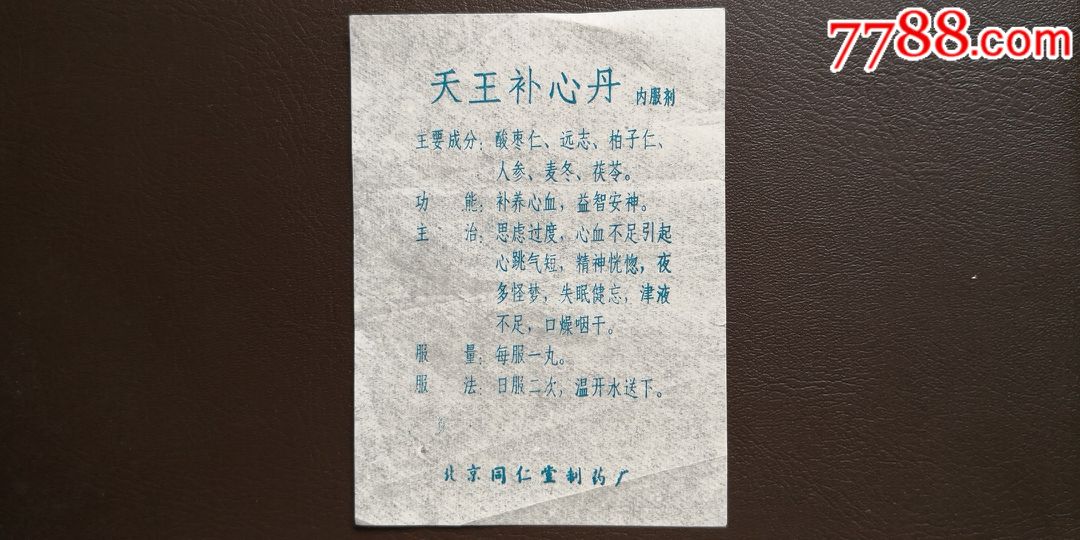 7788.com
天王补心丹 内服剂
主要成分：酸枣仁、远志、柏子仁、
人参、麦冬、茯苓。
功能：补养心血，益智安神。
主治：思虑过度，心血不足引起
心跳气短，精神恍惚，夜
多怪梦，失眠健忘，津液
不足，口燥咽干。
服量：每服一丸。
服法：日服二次，温开水送下。
北京同仁堂制药厂